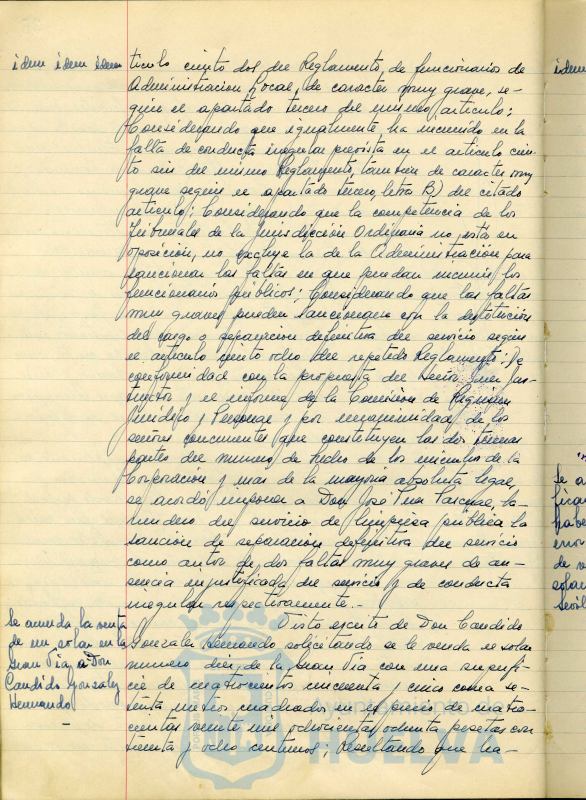 idem idem idem
tículo ciento dos del Reglamento, de funcionarios de
Administracion Local, de caracter muy grave, se-
gún el apartado tercero del mismo artículo;
Considerando que igualmente ha incurrido en la
falta de conducta irregular prevista en el artículo cien-
to seis del mismo Reglamento, también de caracter muy
grave según el apartado tercero, letra B) del citado
artículo; Considerando que la competencia de los
Tribunales de la Jurisdicción Ordinaria no está en
oposición, no excluye la de la Administración para
sancionar las faltas en que puedan incurrir los
funcionarios públicos; Considerando que las faltas
muy graves pueden sancionarse con la destitución
del cargo o separacion definitiva del servicio según
el artículo ciento ocho del repetido Reglamento; De
conformidad con la propuesta del Señor Juez Ins-
tructor y el informe de la Comision de Regimen
Jurídico y Personal y por unanimidad de los
señores concurrentes que constituyen las dos terceras
partes del numero de hecho de los miembros de la
Corporación y mas de la mayoria absoluta legal,
se acordó imponer a Don José Pascual, la-
del servicio de limpieza pública la
sanción de separación definitiva del servicio
como autor de dos faltas muy graves de au-
sencia injustificada del servicio y de conducta
irregular respectivamente.-
Se acuerda la venta
de un solar en la
Gran Vía, a Don
Candido Gonzalez
Hernando
-
Visto escrito de Don Candido
Gonzalez Hernando solicitando se le venda el solar
numero diez, de la Gran Via con una superfi-
cie de cuatrocientos cincuenta y cinco coma se-
senta metros cuadrados en el precio de cuatro-
cientas veinte mil ochocientas ochenta pesetas con
setenta y ocho centimos; Resultando que ha-
idem
Se a
ficar
habe
error
de v
solar
Sevil
HUELVA